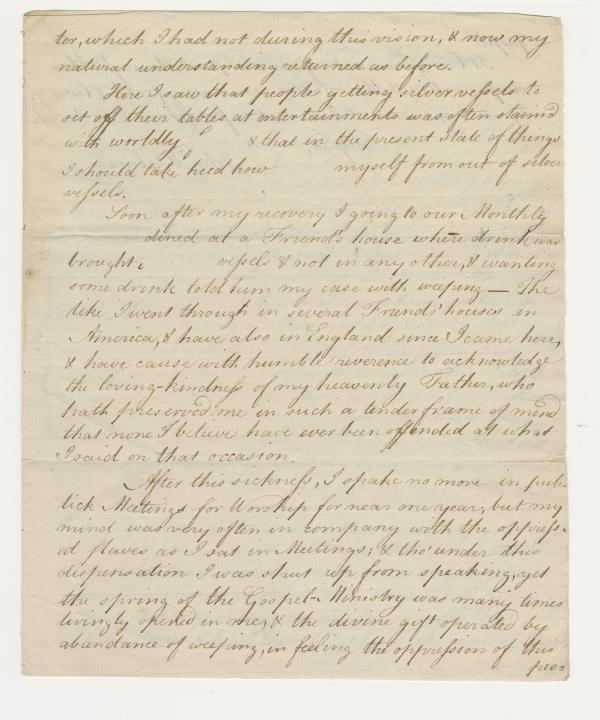 ter, which I had not during this vision, & now my
natural understanding returned as before.
Here I saw that people getting silver vessels to
set off their tables at entertainments was often stained
with worldly & that in the present state of things
I should take heed how myself from out of silver
vessels.
Soon after my recovery I going to our Monthly
dined at a Friend's house where drink was
brought, vessels & not in any other, & wanting
some drink told him my case with weeping — The
like I went through in several Friends' houses in
America, & have also in England since I came here,
& have cause with humble reverence to acknowledge
the loving-kindness of my heavenly Father, who
hath preserved me in such a tender frame of mind
that none I believe have ever been offended at what
I said on that occasion.
After this sickness, I spake no more in pub-
lick Meetings for Worship for near one year, but my
mind was very often in company with the oppress-
ed slaves as I sat in Meetings; & tho' under this
dispensation I was shut up from speaking, yet
the spring of the Gospel-Ministry was many times
livingly opened in me, & the divine gift operated by
abundance of weeping, in feeling the oppression of this
peo=